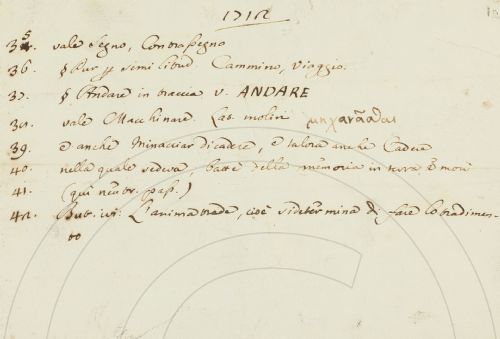 1712
35. vale Segno, Contrasegno
36. § Pur p similitud. Cammino, Viaggio.
37. § Andare in traccia v. ANDARE
38. vale Macchinare. Lat. moliri μηχανᾶσθαι
39. e anche Minacciar di cadere, e talora anche Cadere
40. nella quale sedeva, batte della memoria in terra, e morì
41. (qui neutr. pass.)
42. But. ivi: L'anima trade, cioè si determina di fare lo tradimen-
to